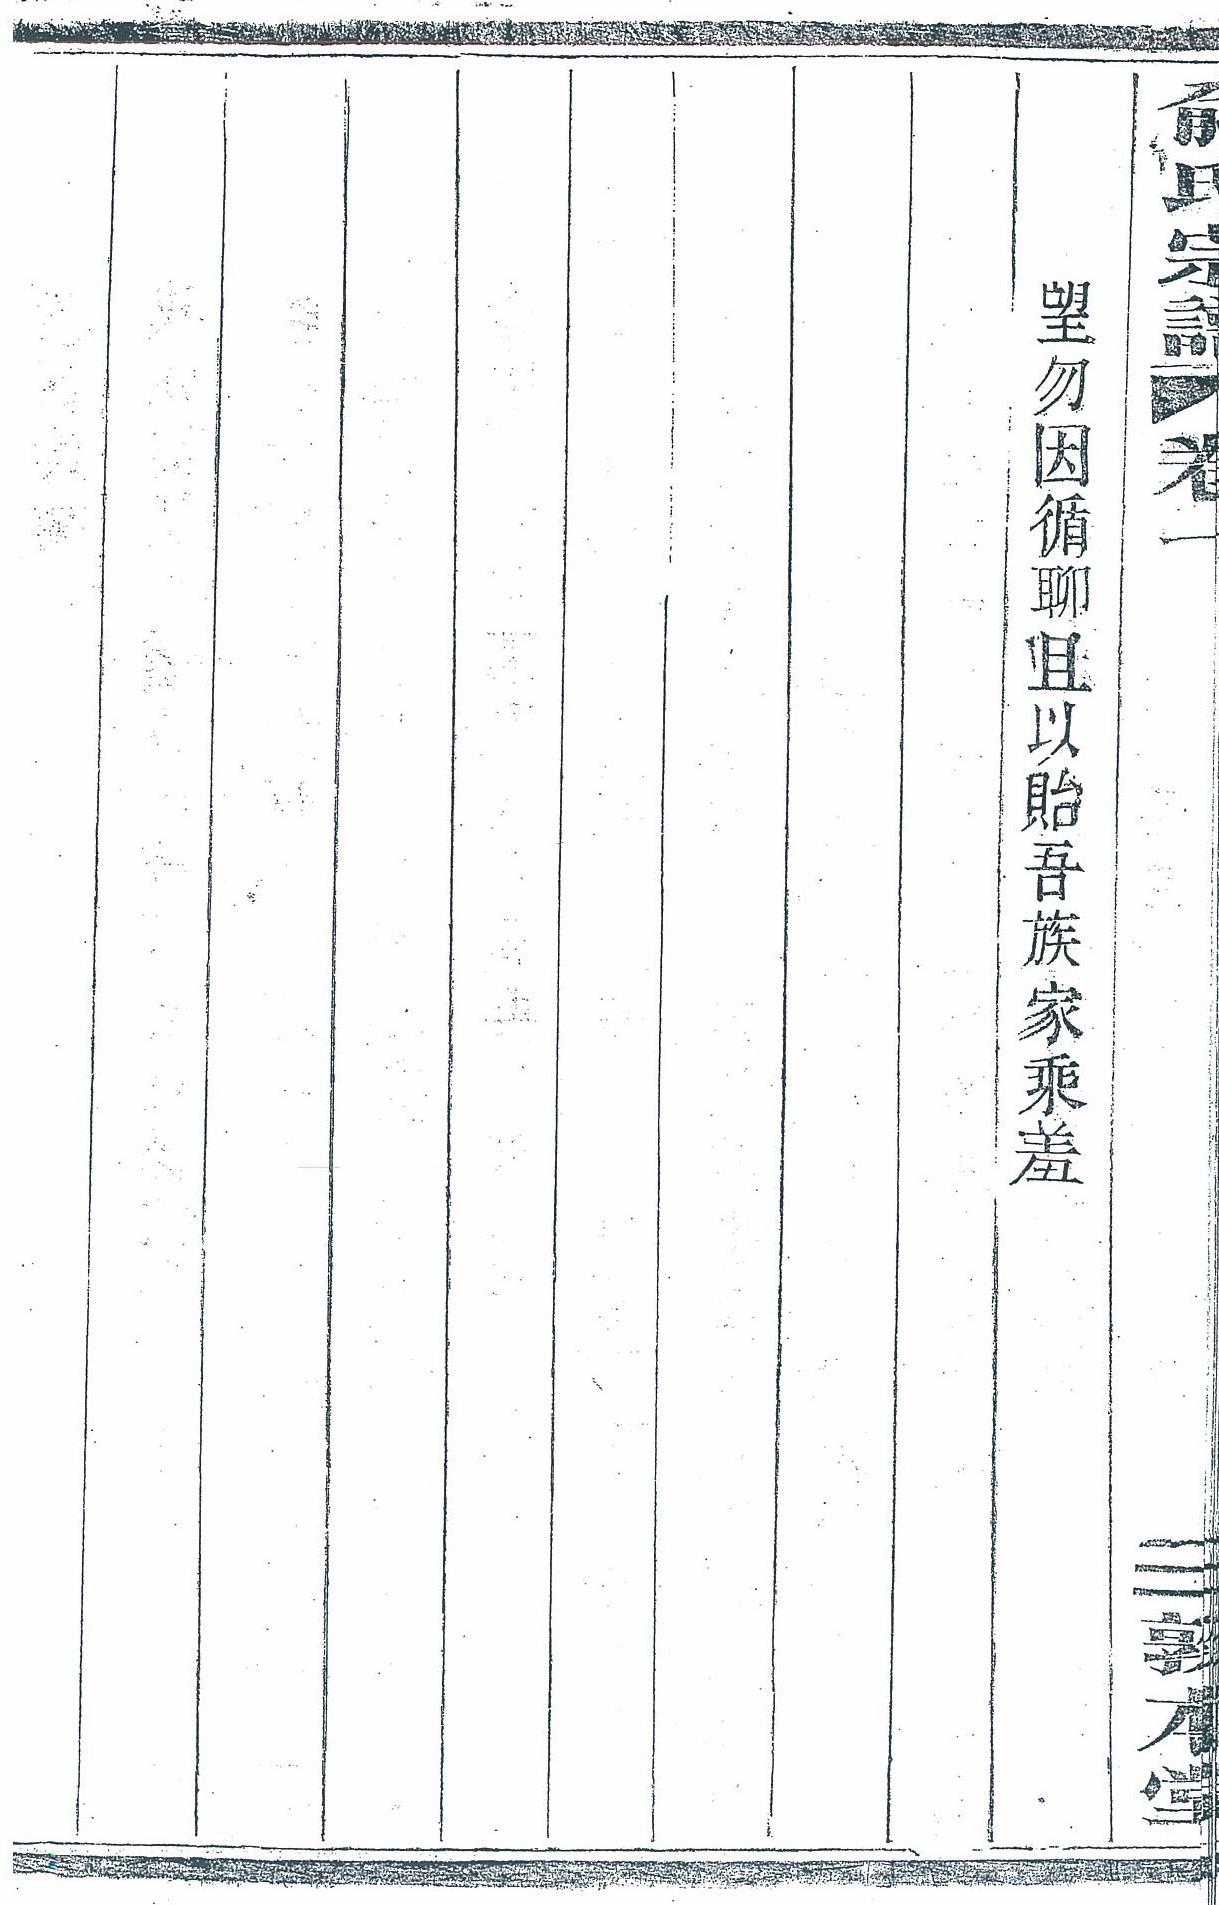 俞氏宗譜 卷一 三 敦本堂
望勿因循聊且以貽吾族家乘羞